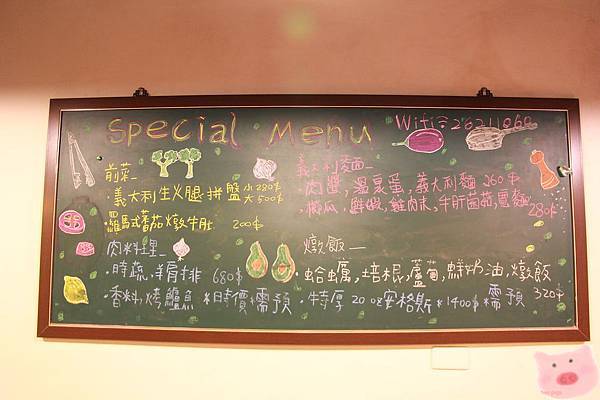 Special Menu
Wifi 26211060
前菜_
·義大利生火腿拼盤 小280$ 大500$
·羅馬式蕃茄燉牛肚 200$
肉料理_
·時蔬,羊肩排 680$
·香料,烤鱸魚 *時價*需預
義大利麵_
·肉醬,溫泉蛋,義大利麵 260$
·櫛瓜,鮮蝦,鮭肉末,牛肝菌菇,寬麵 280$
燉飯_
·蛤蠣,培根,蘆蔔,鮮奶油,燉飯 320$
·特厚20oz安格斯*1400$*需預